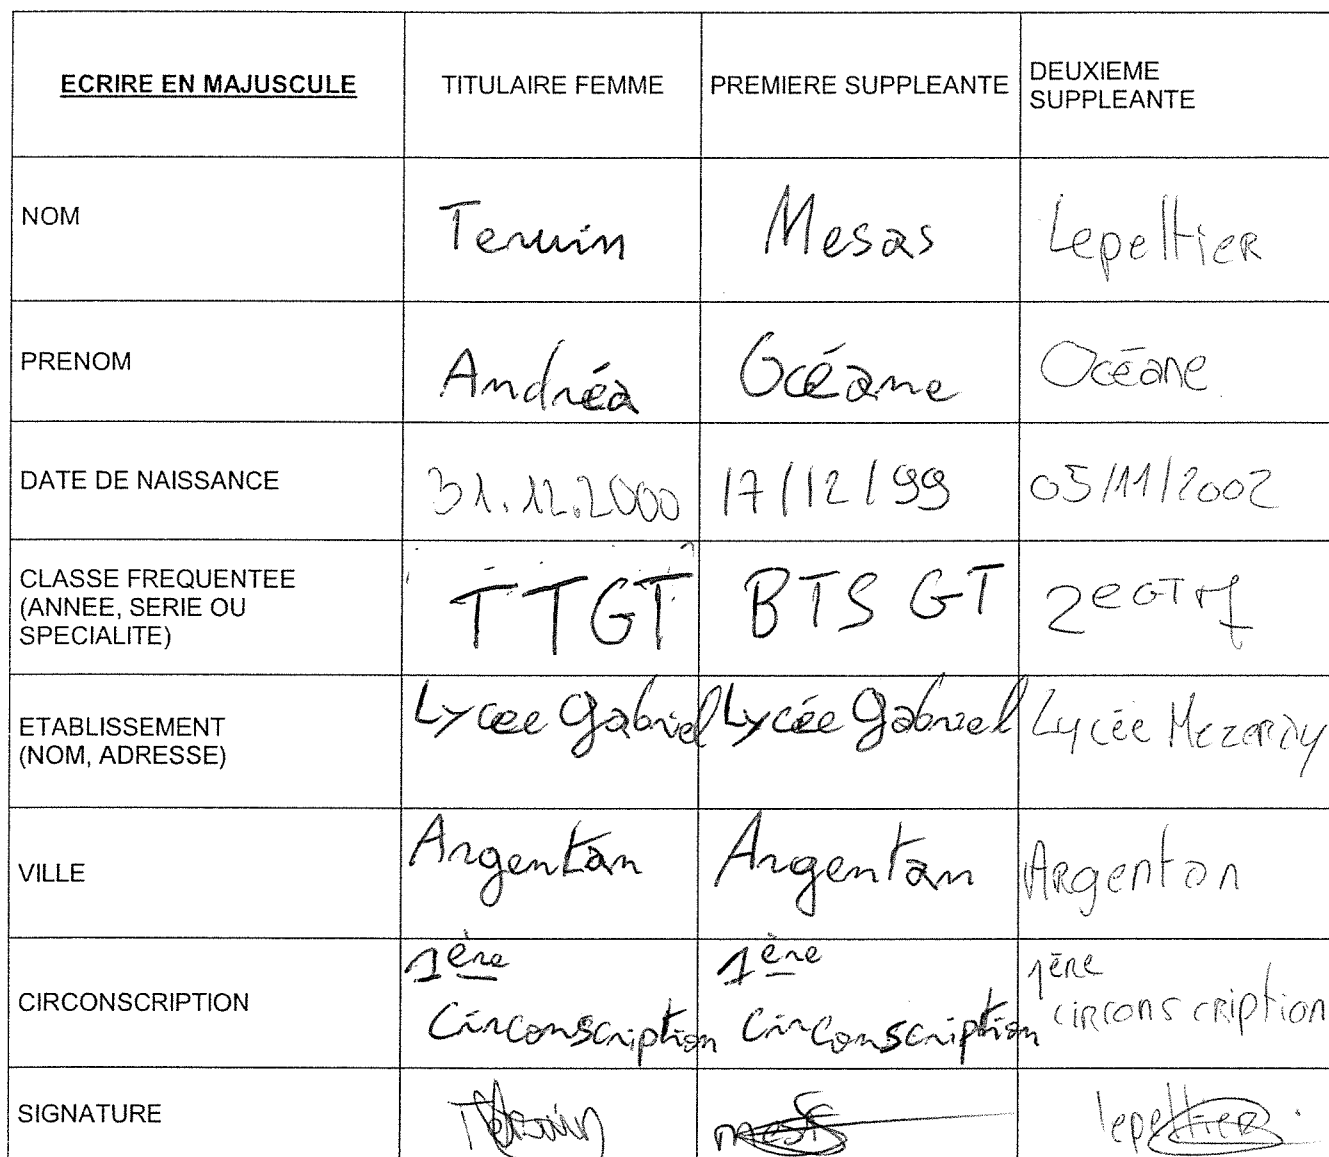 ECRIRE EN MAJUSCULE TITULAIRE FEMME PREMIERE SUPPLEANTE DEUXIEME SUPPLEANTE
NOM Teruin Mesas Lepeltier
PRENOM Andréa Océane Océane
DATE DE NAISSANCE 31.12.2000 17/12/99 05/11/2002
CLASSE FREQUENTEE
(ANNEE, SERIE OU
SPECIALITE) TTGT BTS GT 2eGT
ETABLISSEMENT
(NOM, ADRESSE) Lycée Gabriel Lycée Gabriel Lycée Mezeray
VILLE Argentan Argentan Argentan
CIRCONSCRIPTION 1ère Circonscription 1ère Circonscription 1ère circonscription
SIGNATURE lepeltier